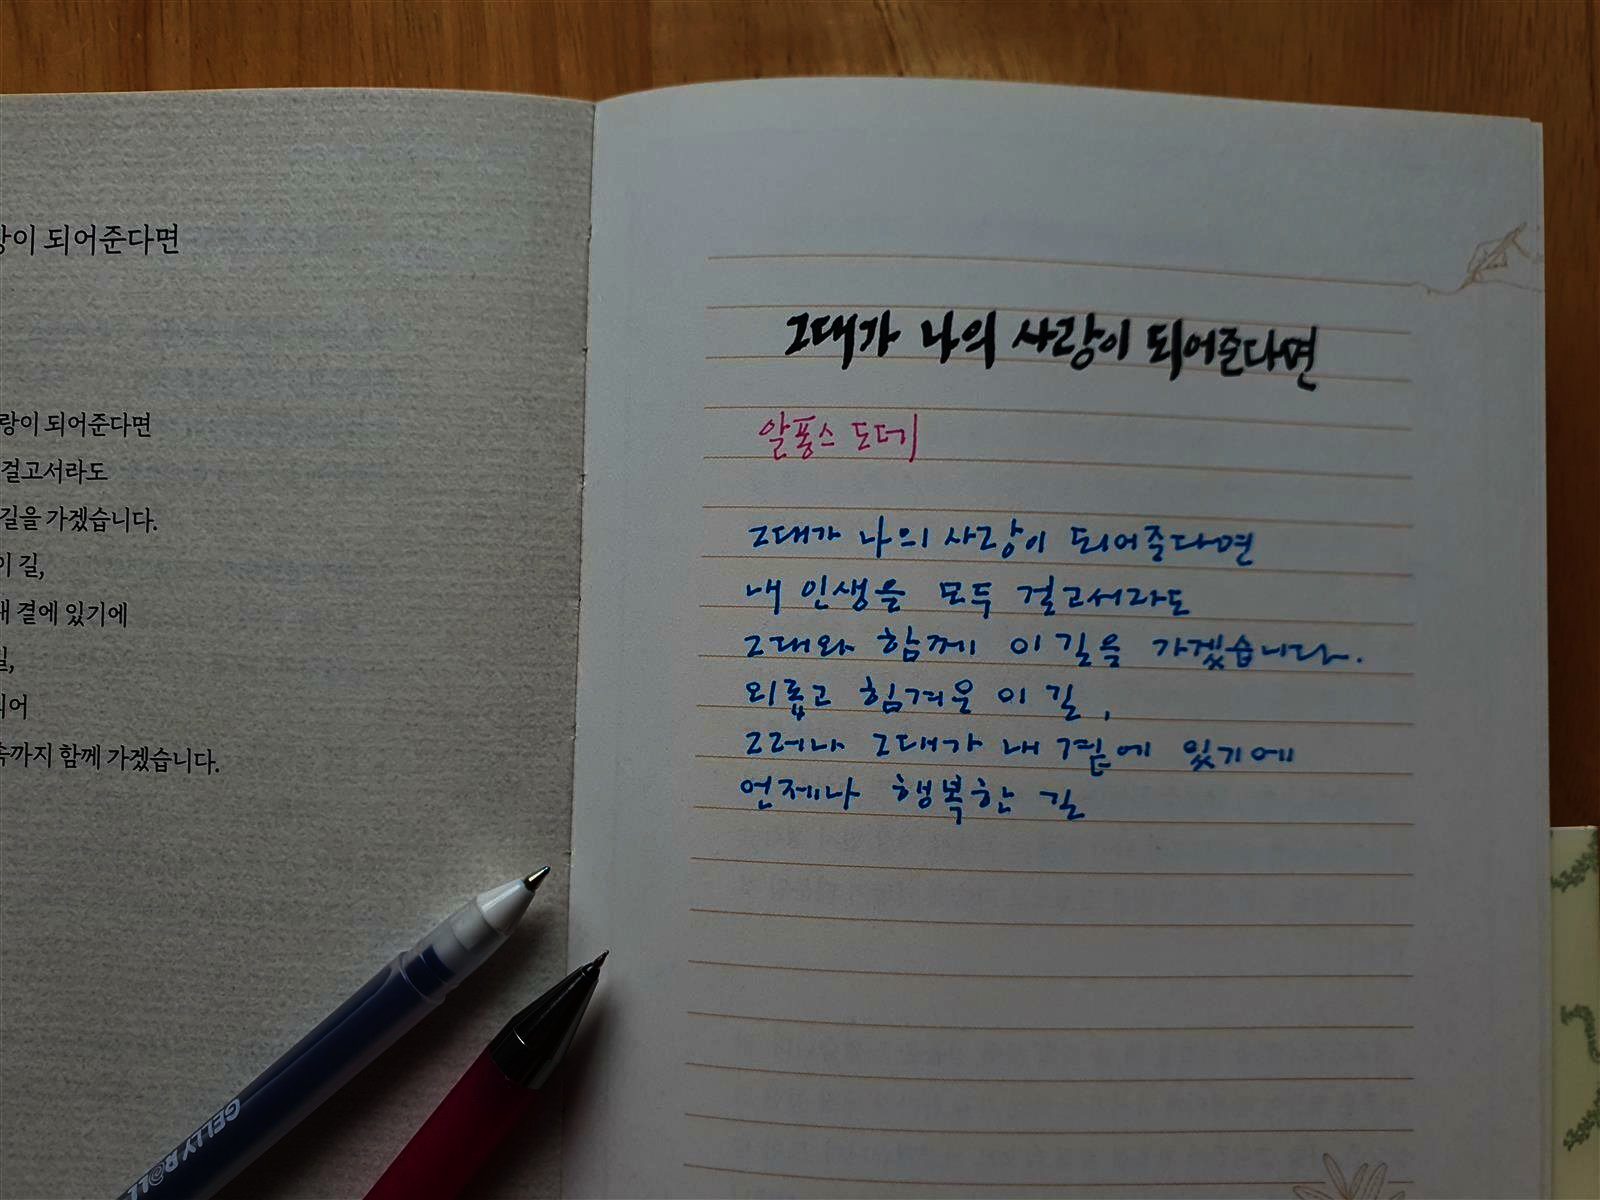 이 되어준다면
랑이 되어준다면
걸고서라도
길을 가겠습니다.
이 길,
내 곁에 있기에
되어
속까지 함께 가겠습니다.
그대가 나의 사랑이 되어준다면
알퐁스 도데
그대가 나의 사랑이 되어준다면
내 인생을 모두 걸고서라도
그대와 함께 이 길을 가겠습니다.
외롭고 힘겨운 이 길,
그러나 그대가 내 곁에 있기에
언제나 행복한 길
GELLY ROLL